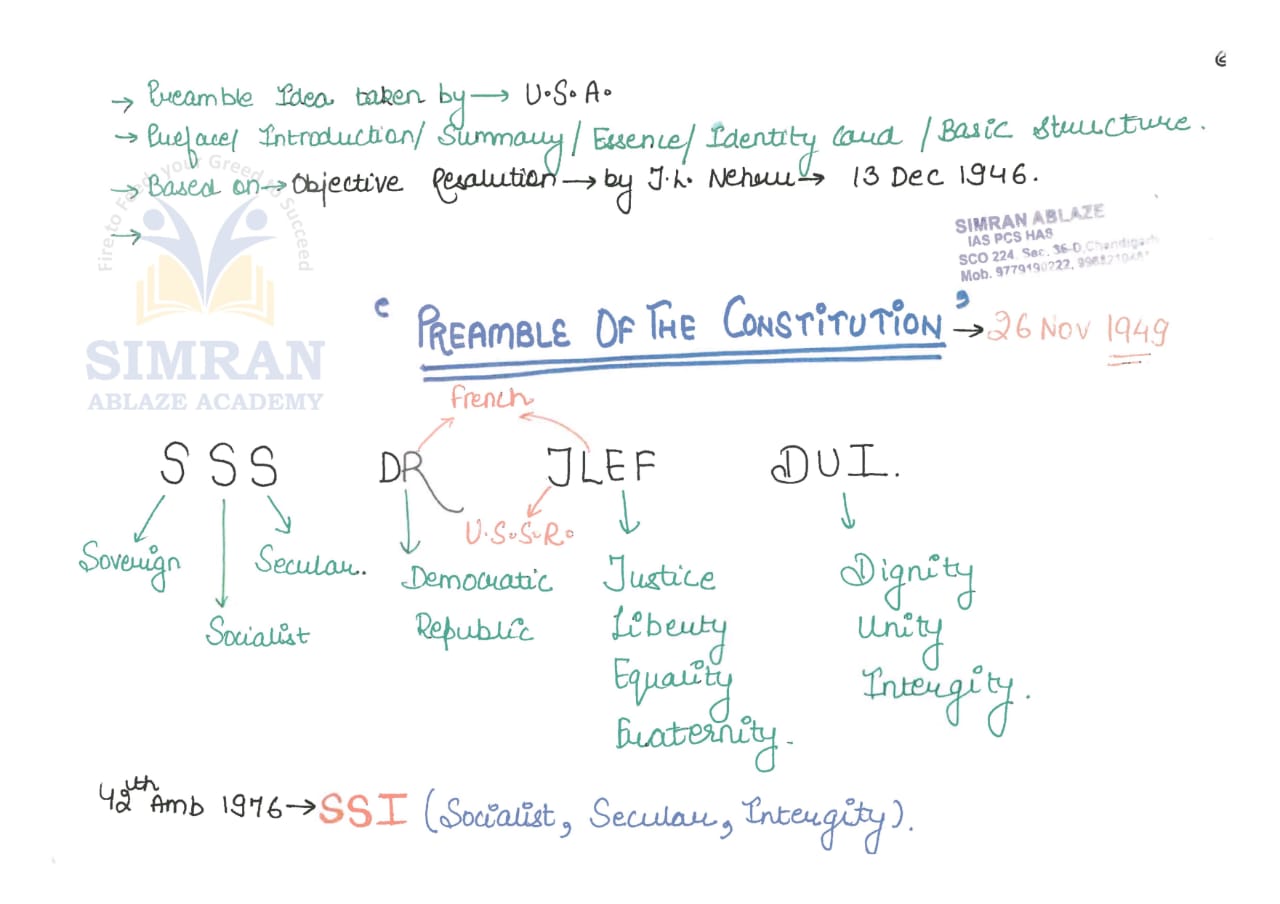 → Preamble Idea taken by → U.S.A.
→ Preface/ Introduction/ Summary/ Essence/ Identity card / Basic structure.
→ Based on → Objective Resalution → by J.L. Nehru → 13 Dec 1946.
→
Fire to Feed your Greed to Succeed
SIMRAN ABLAZE
IAS PCS HAS
SCO 224. Sec. 36-D, Chandigarh
Mob. 9779190222,
"PREAMBLE OF THE CONSTITUTION" → 26 Nov 1949
SIMRAN
ABLAZE ACADEMY
French
S S S DR JLEF DUI.
U.S.S.R.
Soverign Secular. Democratic Justice Dignity
Socialist Republic Liberty Unity
Equality Intergity.
Fraternity.
42th Amb 1976 → SSI (Socialist, Secular, Intergity).